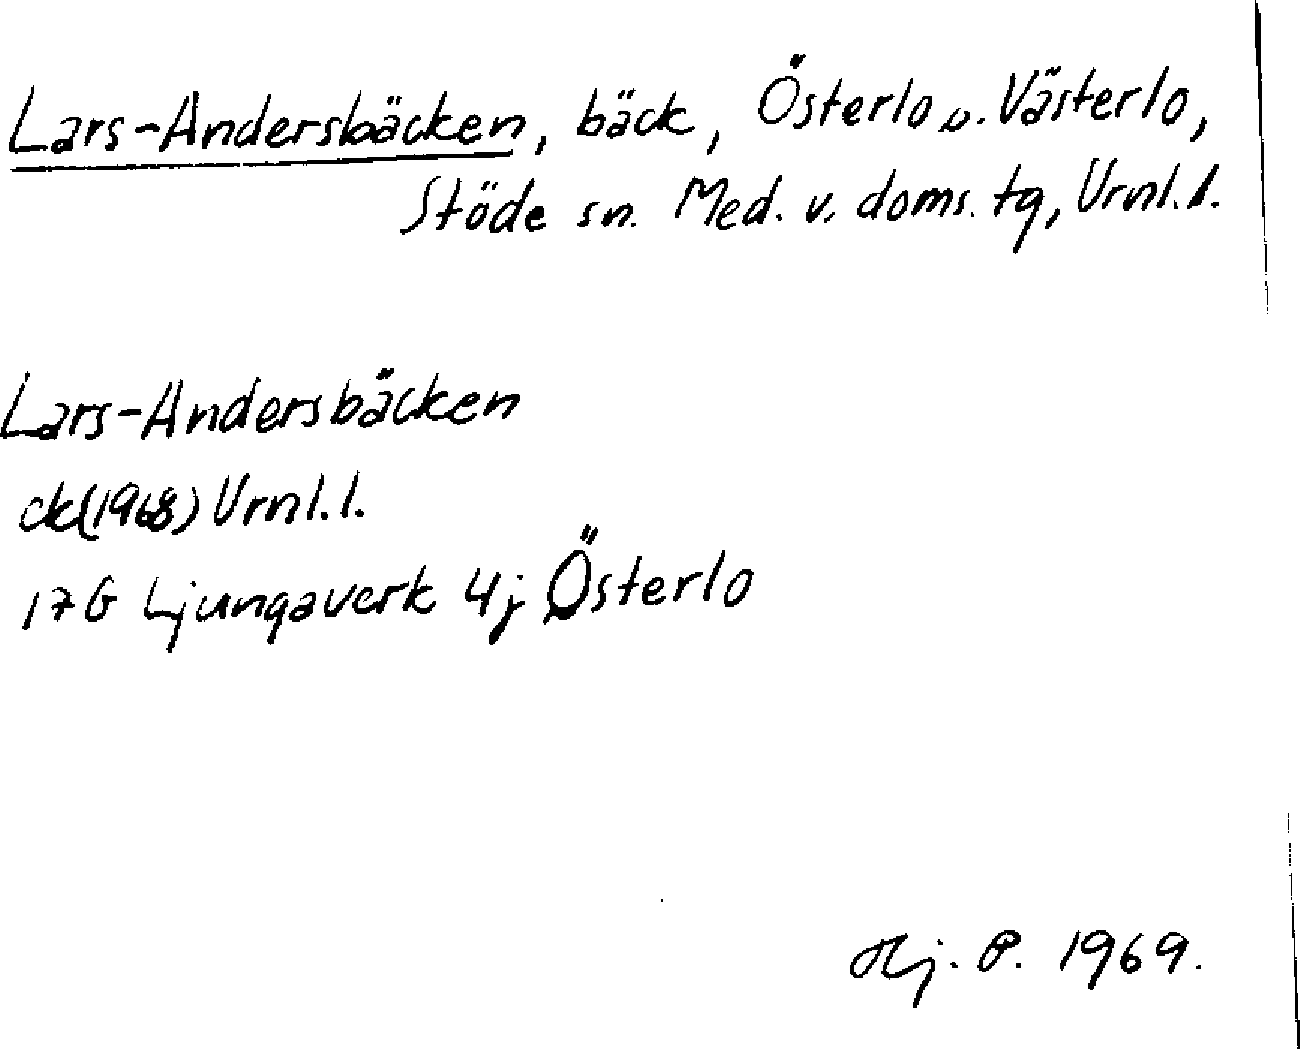 Lars-Andersbäcken, bäck, Österlo o. Västerlo,
Stöde sn. Med. v. doms. tg, Vrnl. l.
Lars-Andersbäcken
ek (1968) Vrnl. l.
17G Ljungaverk 4j Österlo
Hj. P. 1969.